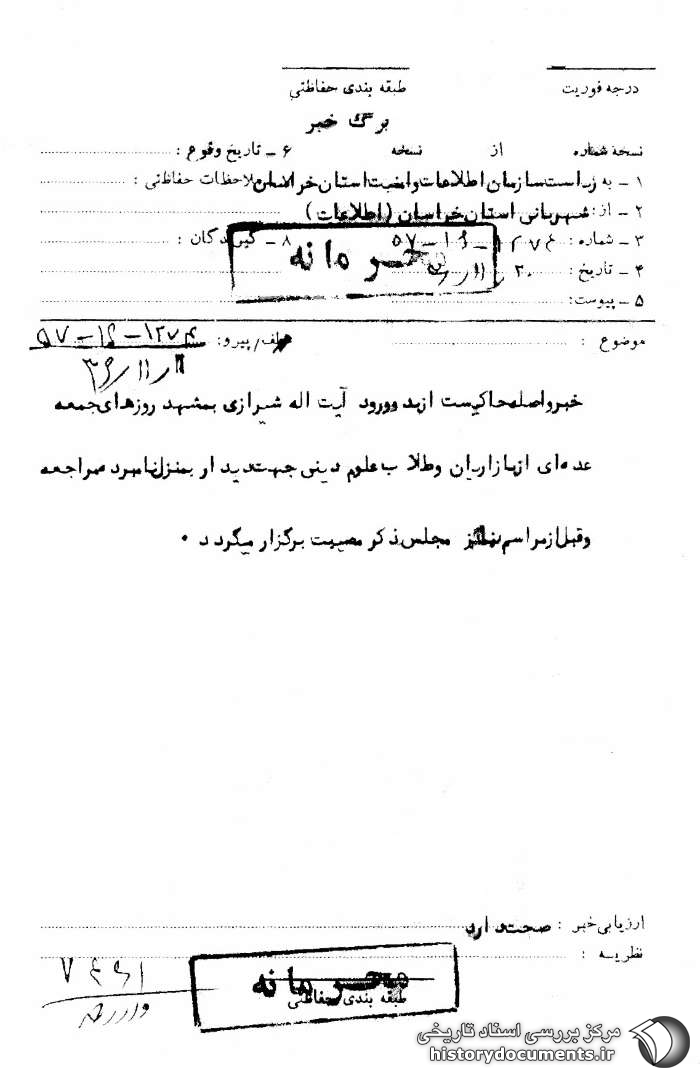 درجه فوریت طبقه بندی حفاظتی
برگ خبر
نسخه شماره از نسخه ۶ ـ تاریخ وقوع :
۱ ـ به ریاست سازمان اطلاعات و امنیت استان خراسان ملاحظات حفاظتی :
۲ ـ از : شهربانی استان خراسان ( اطلاعات )
۳ ـ شماره : ۵۷ ۸ ـ گیرندگان :
محرمانه
۴ ـ تاریخ : ۲۰
۵ ـ پیوست:
موضوع : عطف/پیرو:
خبر واصله حاکیست از بدو ورود آیت اله شیرازی بمشهد روزهای جمعه
عده ای از بازاریان و طلاب علوم دینی جهت دید او بمنزل نامبرده مراجعه
و قبل از مراسم نماز مجلس ذکر مصیبت برگزار میگردد ۰
ارزیابی خبر : صحت دارد
نظریه :
محرمانه
طبقه بندی حفاظتی
مرکز بررسی اسناد تاریخی
historydocuments.ir